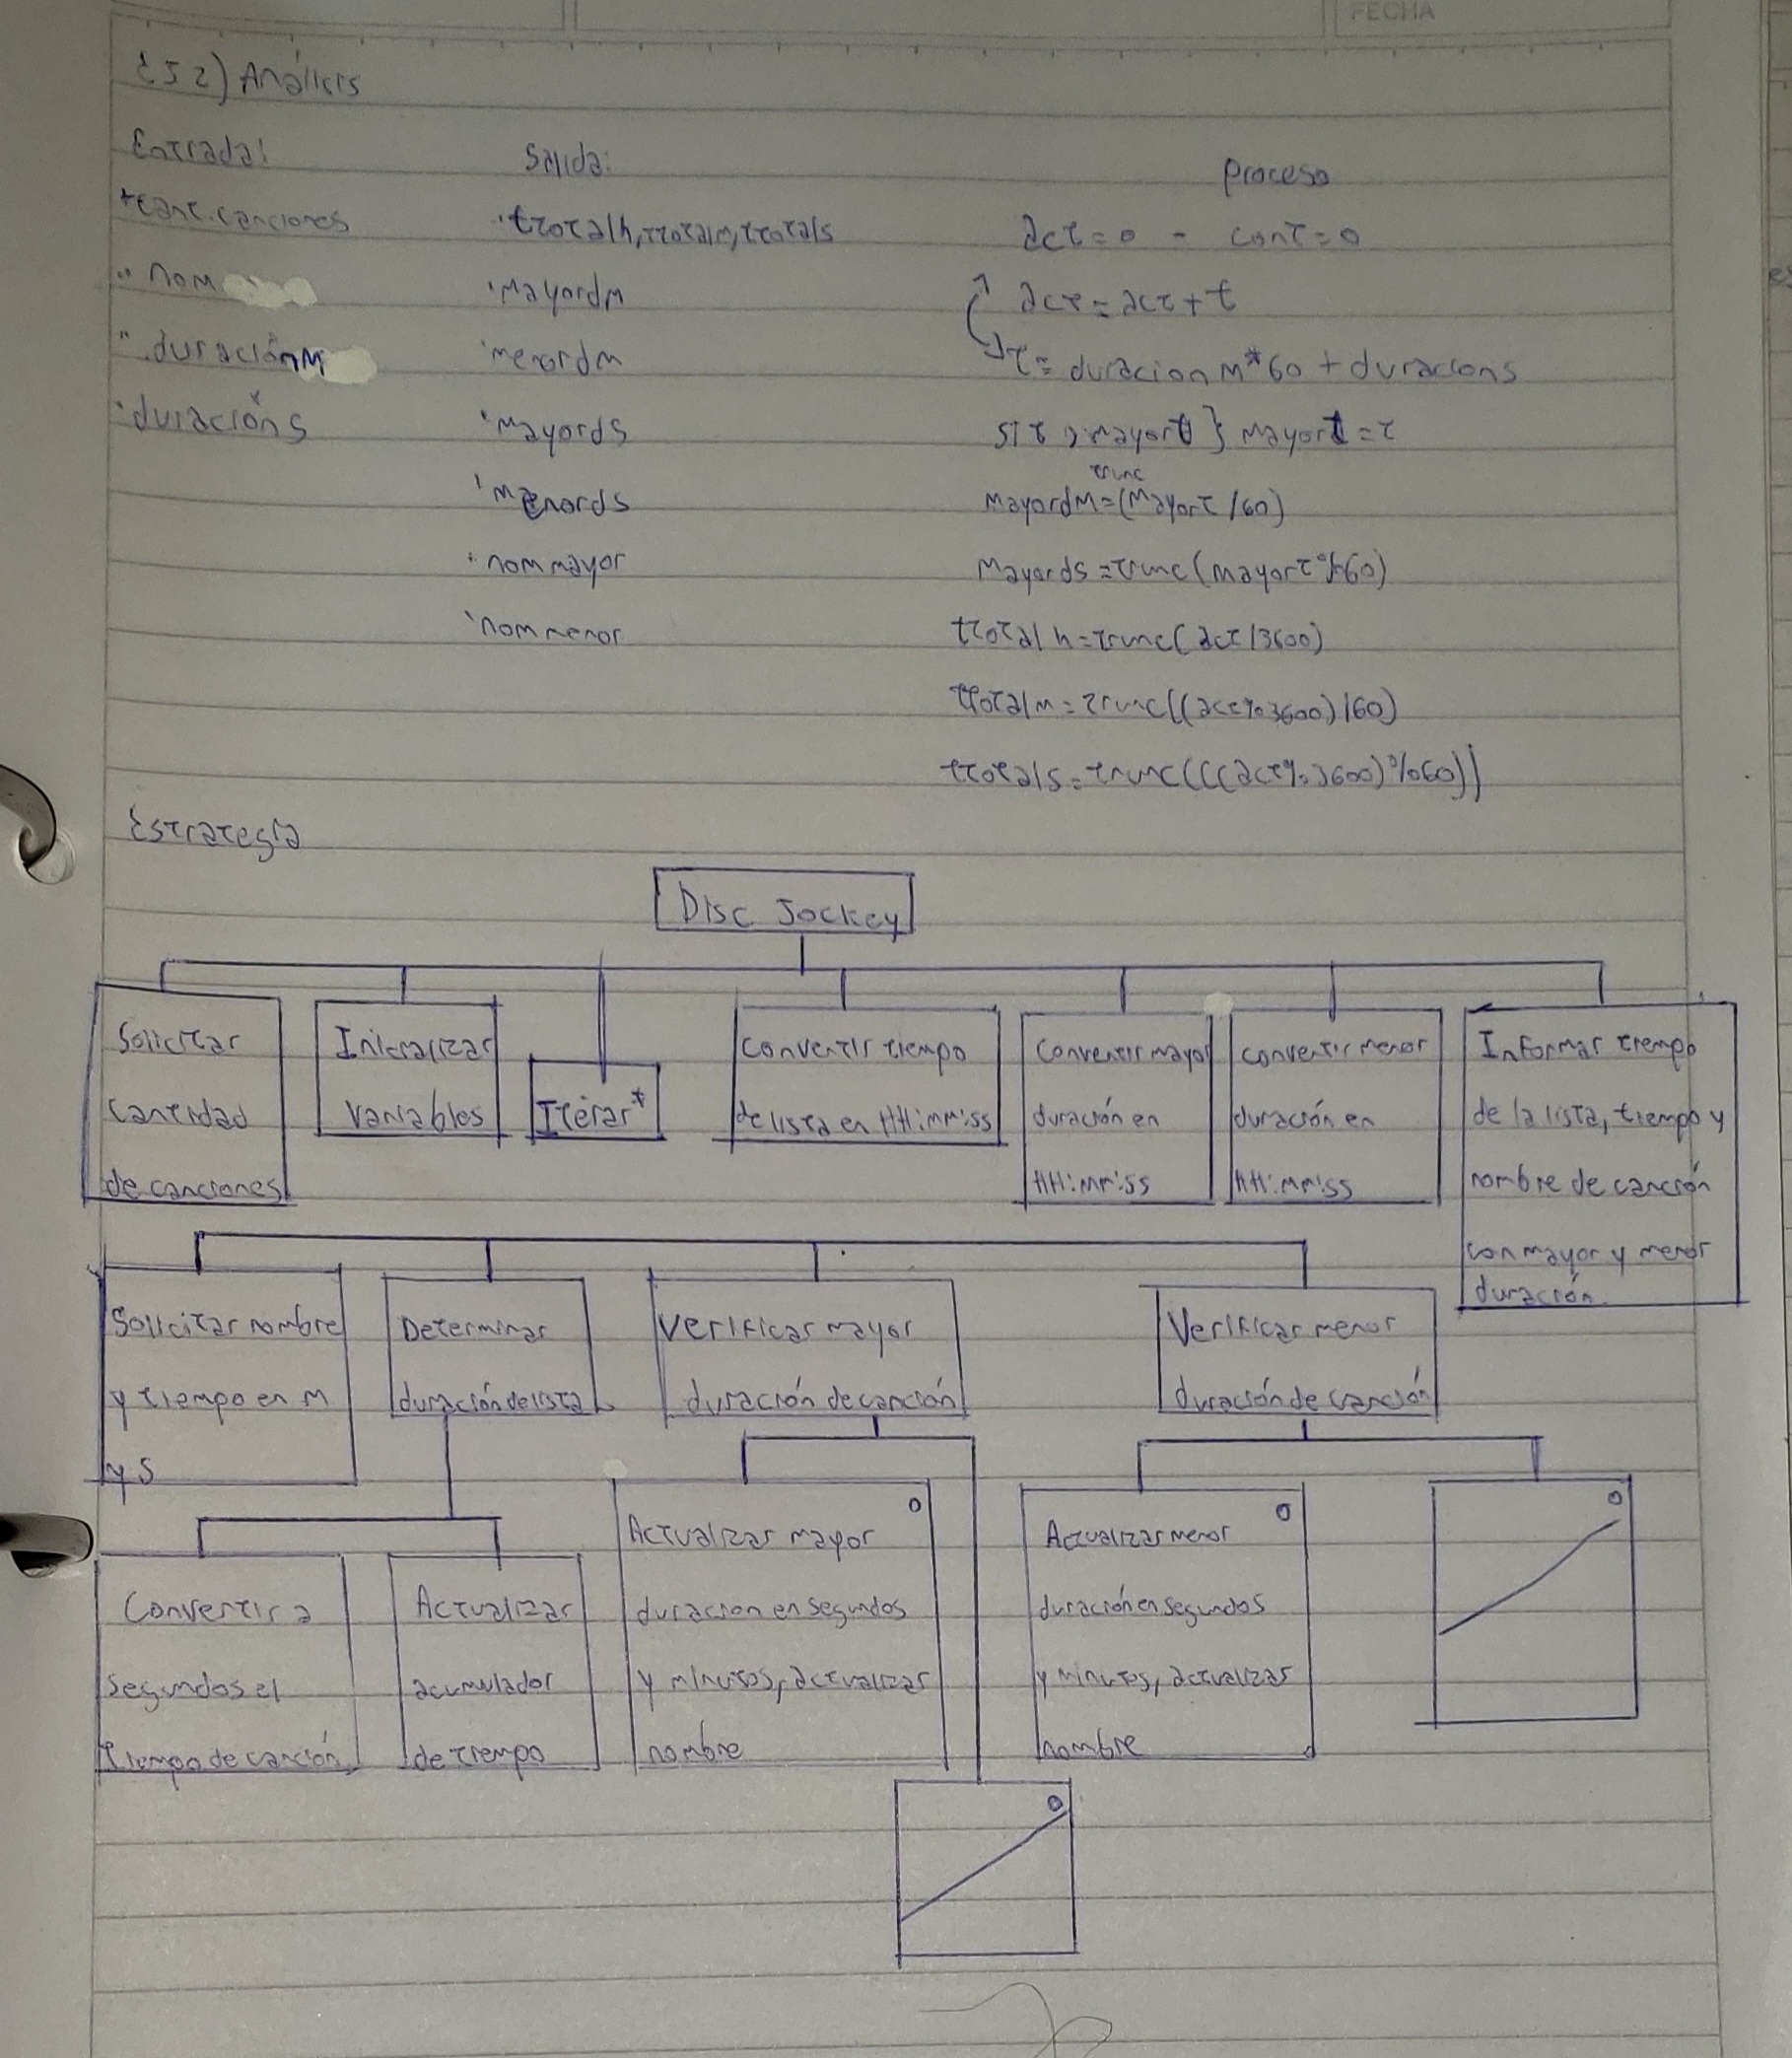 FECHA
E52) Análisis
Entrada:
Salida:
Proceso
cant.canciones
ttotalh,ttotalm,ttotals
act=0 - cont=0
nom
mayordm
act=act+t
duraciónM
menordm
t= duracionM*60+duracions
duracións
mayords
si t > mayort } mayort=t
menords
mayordM=trunc(mayort/60)
nommayor
mayords=trunc(mayort%60)
nommenor
ttotalh=trunc(act/3600)
ttotalm=trunc((act%3600)/60)
ttotals=trunc(((act%3600)%60))
Estrategia
Disc Jockey
Solicitar
cantidad
de canciones
Inicializar
variables
Iterar*
Convertir tiempo
de lista en HH:mm:ss
Convertir mayor
duración en
HH:mm:ss
convertir menor
duración en
HH:mm:ss
Informar tiempo
de la lista, tiempo y
nombre de canción
con mayor y menor
duración.
Solicitar nombre
y tiempo en M
y S
Determinar
duración de lista
Verificar mayor
duración de canción
Verificar menor
duración de canción
Convertir a
segundos el
tiempo de canción
Actualizar
acumulador
de tiempo
o
Actualizar mayor
duracion en segundos
y minutos, actualizar
nombre
o
Actualizar menor
duración en segundos
y minutos, actualizar
nombre
o
o